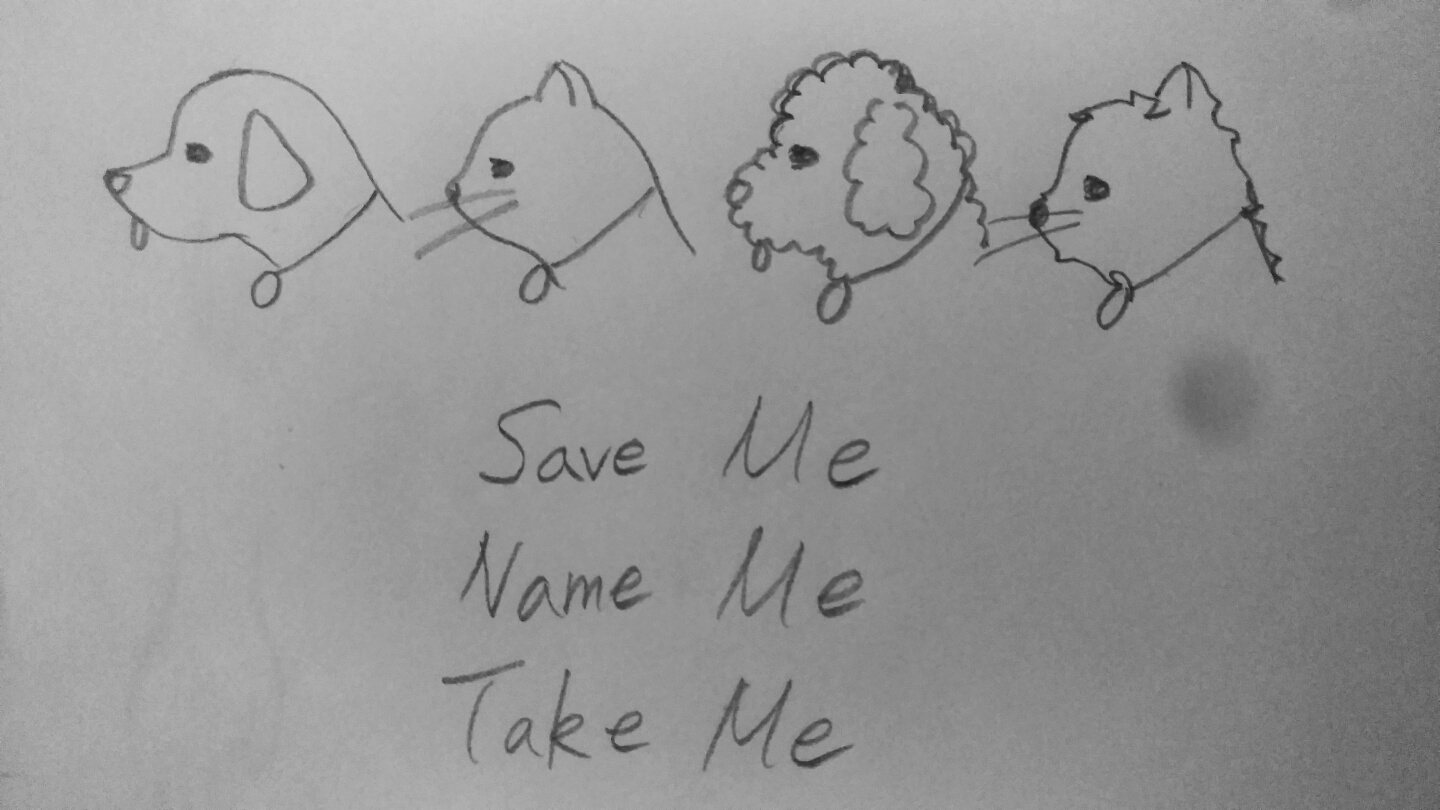 Save Me
Name Me
Take Me